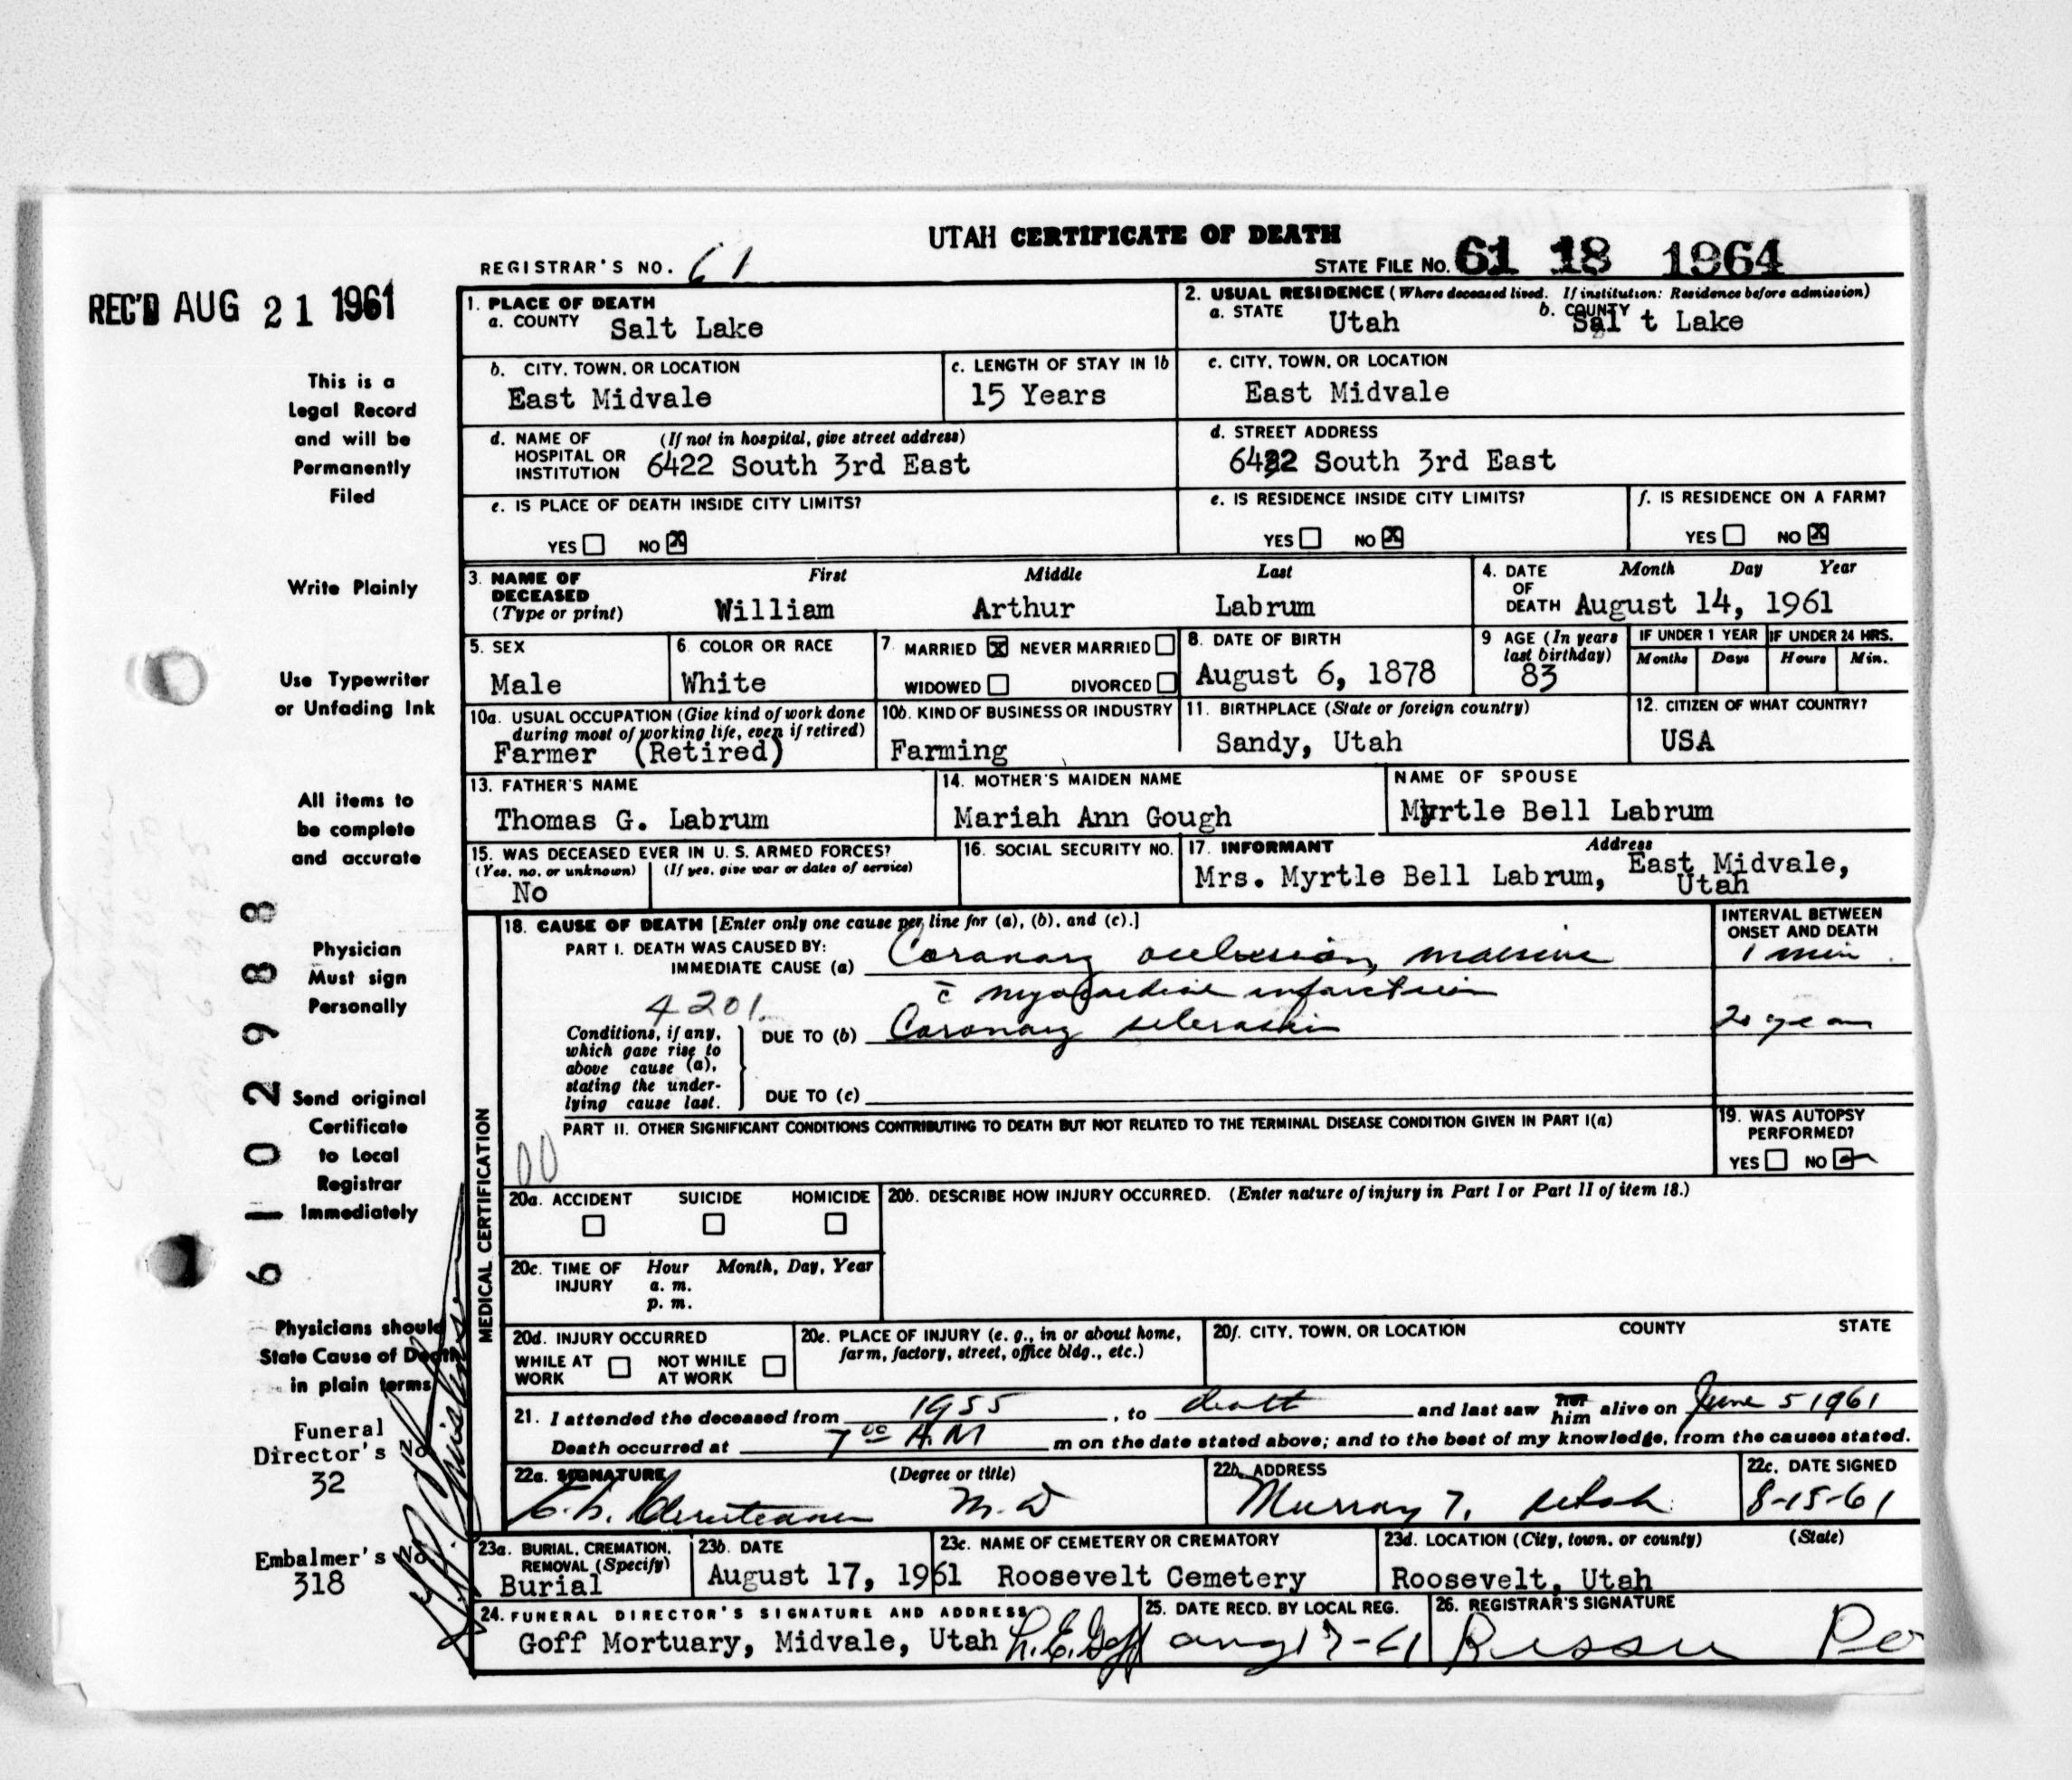 UTAH CERTIFICATE OF DEATH
REGISTRAR'S NO. 61
STATE FILE NO. 61 18 1964
REC'D AUG 21 1961
This is a
Legal Record
and will be
Permanently
Filed
Write Plainly
Use Typewriter
or Unfading Ink
All items to
be complete
and accurate
Physician
Must sign
Personally
Send original
Certificate
to Local
Registrar
Immediately
Physicians should
State Cause of Death
in plain terms
Funeral
Director's No
32
Embalmer's No
318
6102988
1. PLACE OF DEATH
a. COUNTY Salt Lake
2. USUAL RESIDENCE (Where deceased lived. If institution: Residence before admission)
a. STATE Utah b. COUNTY Sal t Lake
b. CITY, TOWN, OR LOCATION
East Midvale
c. LENGTH OF STAY IN 1b
15 Years
c. CITY, TOWN, OR LOCATION
East Midvale
d. NAME OF HOSPITAL OR INSTITUTION (If not in hospital, give street address)
6422 South 3rd East
d. STREET ADDRESS
6422 South 3rd East
e. IS PLACE OF DEATH INSIDE CITY LIMITS?
YES NO X
e. IS RESIDENCE INSIDE CITY LIMITS?
YES NO X
f. IS RESIDENCE ON A FARM?
YES NO X
3. NAME OF DECEASED (Type or print)
First Middle Last
William Arthur Labrum
4. DATE OF DEATH Month Day Year
August 14, 1961
5. SEX
Male
6. COLOR OR RACE
White
7. MARRIED X NEVER MARRIED
WIDOWED DIVORCED
8. DATE OF BIRTH
August 6, 1878
9 AGE (In years last birthday)
83
IF UNDER 1 YEAR
Months Days
IF UNDER 24 HRS.
Hours Min.
10a. USUAL OCCUPATION (Give kind of work done
during most of working life, even if retired)
Farmer (Retired)
10b. KIND OF BUSINESS OR INDUSTRY
Farming
11. BIRTHPLACE (State or foreign country)
Sandy, Utah
12. CITIZEN OF WHAT COUNTRY?
USA
13. FATHER'S NAME
Thomas G. Labrum
14. MOTHER'S MAIDEN NAME
Mariah Ann Gough
NAME OF SPOUSE
Myrtle Bell Labrum
15. WAS DECEASED EVER IN U. S. ARMED FORCES?
(Yes, no, or unknown) (If yes, give war or dates of service)
No
16. SOCIAL SECURITY NO.
17. INFORMANT Address
Mrs. Myrtle Bell Labrum, East Midvale,
Utah
MEDICAL CERTIFICATION
18. CAUSE OF DEATH [Enter only one cause per line for (a), (b), and (c).]
INTERVAL BETWEEN
ONSET AND DEATH
PART I. DEATH WAS CAUSED BY:
IMMEDIATE CAUSE (a) Coronary occlusion, massive 1 min
c̄ myocardial infarction
4201.
Conditions, if any,
which gave rise to
above cause (a),
stating the under-
lying cause last.
DUE TO (b) Coronary sclerosis 20 years
DUE TO (c)
PART II. OTHER SIGNIFICANT CONDITIONS CONTRIBUTING TO DEATH BUT NOT RELATED TO THE TERMINAL DISEASE CONDITION GIVEN IN PART I(a)
00
19. WAS AUTOPSY
PERFORMED?
YES NO
20a. ACCIDENT SUICIDE HOMICIDE
20b. DESCRIBE HOW INJURY OCCURRED. (Enter nature of injury in Part I or Part II of item 18.)
20c. TIME OF INJURY Hour Month, Day, Year
a. m.
p. m.
20d. INJURY OCCURRED
WHILE AT WORK NOT WHILE AT WORK
20e. PLACE OF INJURY (e. g., in or about home,
farm, factory, street, office bldg., etc.)
20f. CITY, TOWN, OR LOCATION COUNTY STATE
21. I attended the deceased from 1955, to death and last saw her him alive on June 5 1961
Death occurred at 7 00 A.M m on the date stated above; and to the best of my knowledge, from the causes stated.
22a. SIGNATURE (Degree or title)
M.D
22b. ADDRESS
Murray 7, Utah
22c. DATE SIGNED
8-15-61
23a. BURIAL, CREMATION,
REMOVAL (Specify)
Burial
23b. DATE
August 17, 1961
23c. NAME OF CEMETERY OR CREMATORY
Roosevelt Cemetery
23d. LOCATION (City, town, or county) (State)
Roosevelt, Utah
24. FUNERAL DIRECTOR'S SIGNATURE AND ADDRESS
Goff Mortuary, Midvale, Utah L.E. Goff
25. DATE RECD. BY LOCAL REG.
Aug 17-61
26. REGISTRAR'S SIGNATURE